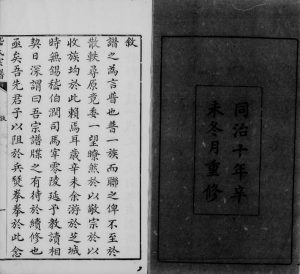 同治十年辛
未冬月重修
敘
譜之為言普也普一族而聯之俾不至於
散軼尋原竟委一望瞭然於以敬宗於以
收族均於此賴焉耳歲辛未余游於芝城
時無錫嵇伯潤司馬宰零陵延予教讀相
契日深謂曰吾宗譜牒之有待於續修也
亟矣吾先君子以阻於兵燹拳拳於此念
氏宗譜
敘